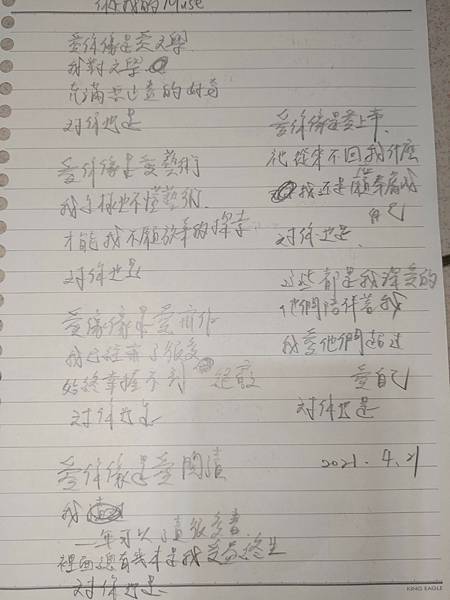 你我的Muse
愛你像是愛文學
我對文學
充滿無止盡的好奇
對你也是
愛你像是愛藝術
我怎樣也不懂藝術
才能我不願放棄的探索
對你也是
愛你像是愛寫作
我已經寫了很多
始終掌握不到 絕竅
對你也是
愛你像是愛閱讀
我
一年可以讀很多書
裡面總有幾本是我受益終生
對你也是
愛你像是愛上帝
祂從來不回我什麼
我還是願奉獻我
自己
對你也是
這些都是我深愛的
他們陪伴著我
我愛他們超過
愛自己
對你也是
2021.4.21
KING EAGLE